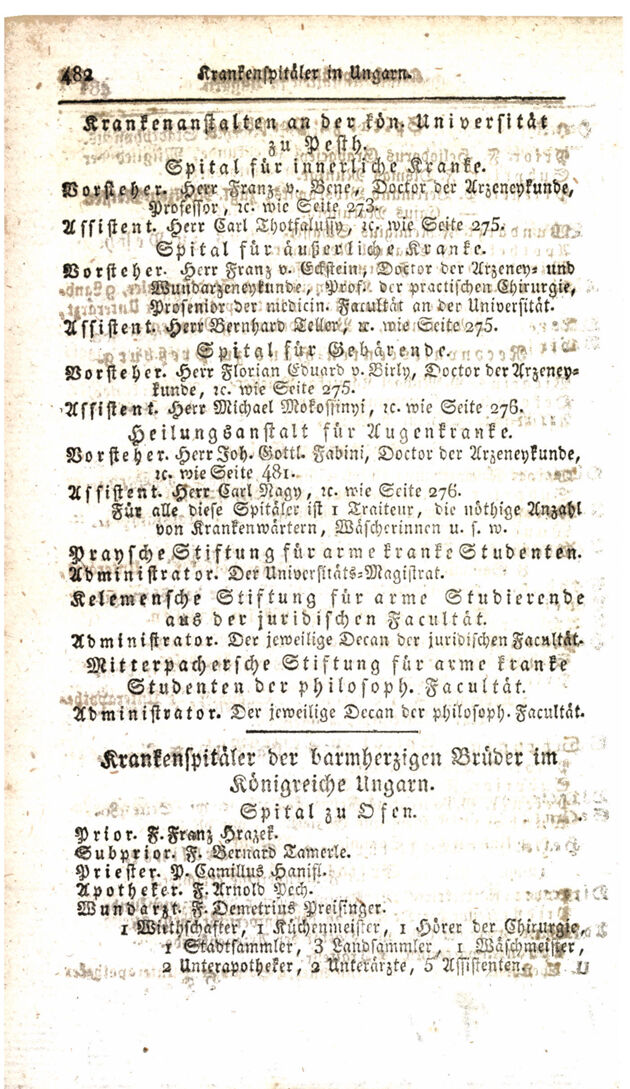 482 Krankenspitäler in Ungarn.
Krankenanstalten an der kön. Universität
zu Pesth.
Spital für innerliche Kranke.
Vorsteher. Herr Franz v. Bene, Doctor der Arzeneykunde,
Professor, ꝛc. wie Seite 273.
Assistent. Herr Carl Thotfalussy, ꝛc. wie Seite 275.
Spital für äußerliche Kranke.
Vorsteher. Herr Franz v. Eckstein, Doctor der Arzeney- und
Wundarzeneykunde, Prof. der practischen Chirurgie,
Prosenior der medicin. Facultät an der Universität.
Assistent. Herr Bernhard Teller, ꝛc. wie Seite 275.
Spital für Gebärende.
Vorsteher. Herr Florian Eduard v. Birly, Doctor der Arzeney-
kunde, ꝛc. wie Seite 275.
Assistent. Herr Michael Mokossinyi, ꝛc. wie Seite 276.
Heilungsanstalt für Augenkranke.
Vorsteher. Herr Joh. Gottl. Fabini, Doctor der Arzeneykunde,
ꝛc. wie Seite 481.
Assistent. Herr Carl Nagy, ꝛc. wie Seite 276.
Für alle diese Spitäler ist 1 Traiteur, die nöthige Anzahl
von Krankenwärtern, Wäscherinnen u. s. w.
Praysche Stiftung für arme kranke Studenten.
Administrator. Der Universitäts-Magistrat.
Kelemensche Stiftung für arme Studierende
aus der juridischen Facultät.
Administrator. Der jeweilige Decan der juridischen Facultät.
Mitterpachersche Stiftung für arme kranke
Studenten der philosoph. Facultät.
Administrator. Der jeweilige Decan der philosoph. Facultät.
Krankenspitäler der barmherzigen Brüder im
Königreiche Ungarn.
Spital zu Ofen.
Prior. F. Franz Hrazek.
Subprior. F. Bernard Tamerle.
Priester. P. Camillus Hanisl.
Apotheker. F. Arnold Pech.
Wundarzt. F. Demetrius Preisinger.
1 Wirthschafter, 1 Küchenmeister, 1 Hörer der Chirurgie,
1 Stadtsammler, 3 Landsammler, 1 Wäschmeister,
2 Unterapotheker, 2 Unterärzte, 5 Assistenten.